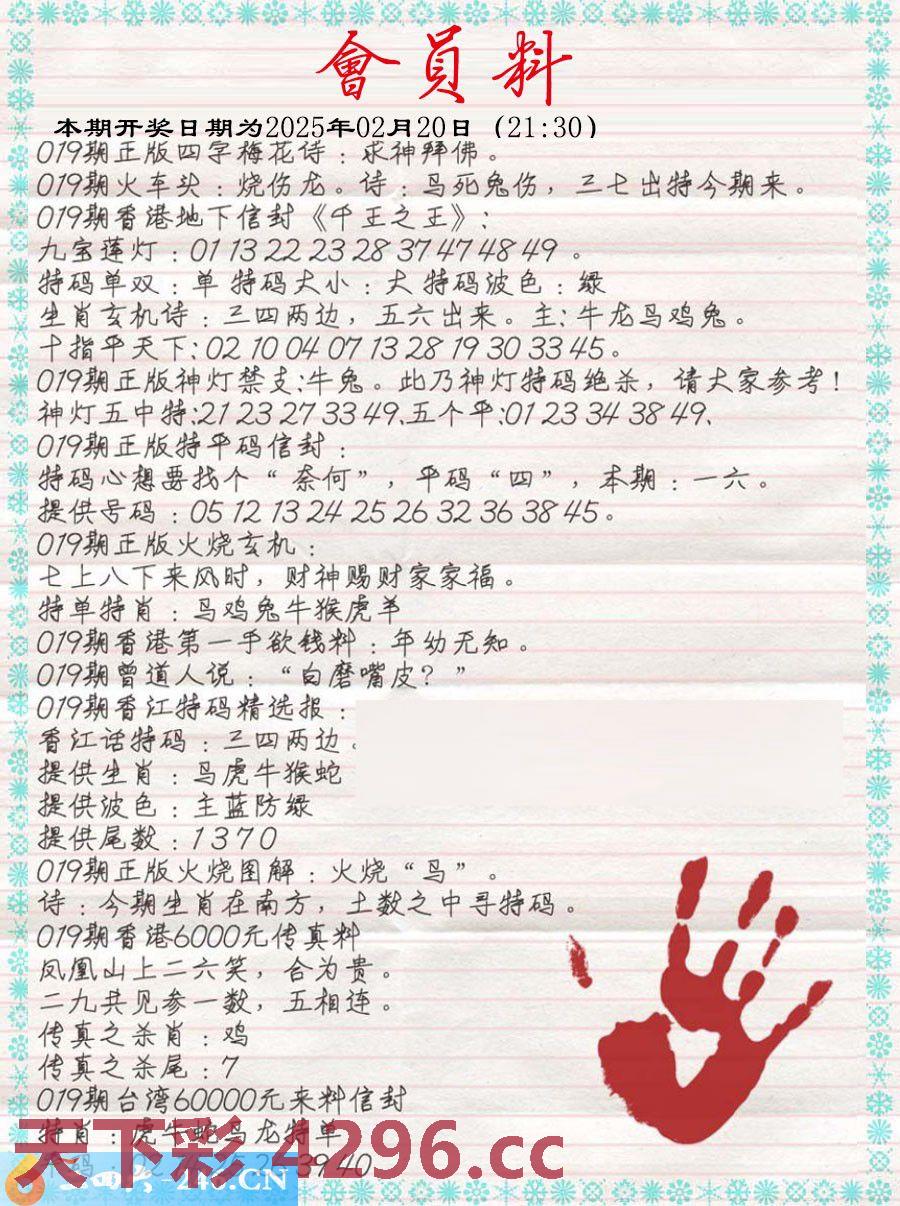 會員料
本期开奖日期为2025年02月20日（21:30）
019期正版四字梅花诗：求神拜佛。
019期火车头：烧伤龙。诗：鸟死兔伤，三七出特今期来。
019期香港地下信封《千王之王》：
九宝莲灯：01 13 22 23 28 37 47 48 49 。
特码单双：单 特码大小：大 特码波色：绿
生肖玄机诗：三四两边，五六出来。主：牛龙马鸡兔。
十指平天下：02 10 04 07 13 28 19 30 33 45。
019期正版神灯禁支：牛兔。此乃神灯特码绝杀，请大家参考！
神灯五中特：21 23 27 33 49.五个平：01 23 34 38 49.
019期正版特平码信封：
特码心想要找个“ 奈何”，平码“四”，本期：一六。
提供号码：05 12 13 24 25 26 32 36 38 45。
019期正版火烧玄机：
七上八下来风时，财神赐财家家福。
特单特肖：马鸡兔牛猴虎羊
019期香港第一手欲钱料：年幼无知。
019期曾道人说：“白磨嘴皮？”
019期香江特码精选报：
香江话特码：三四两边。
提供生肖：马虎牛猴蛇
提供波色：主蓝防绿
提供尾数：1 3 7 0
019期正版火烧图解：火烧“鸟”。
诗：今期生肖在南方，土数之中寻特码。
019期香港6000元传真料
凤凰山上二六笑，合为贵。
二九共见参一数，五相连。
传真之杀肖：鸡
传真之杀尾：7
019期台湾60000元来料信封
特肖：虎牛蛇马龙特单
天下彩 4296.cc
39 40
246.CN